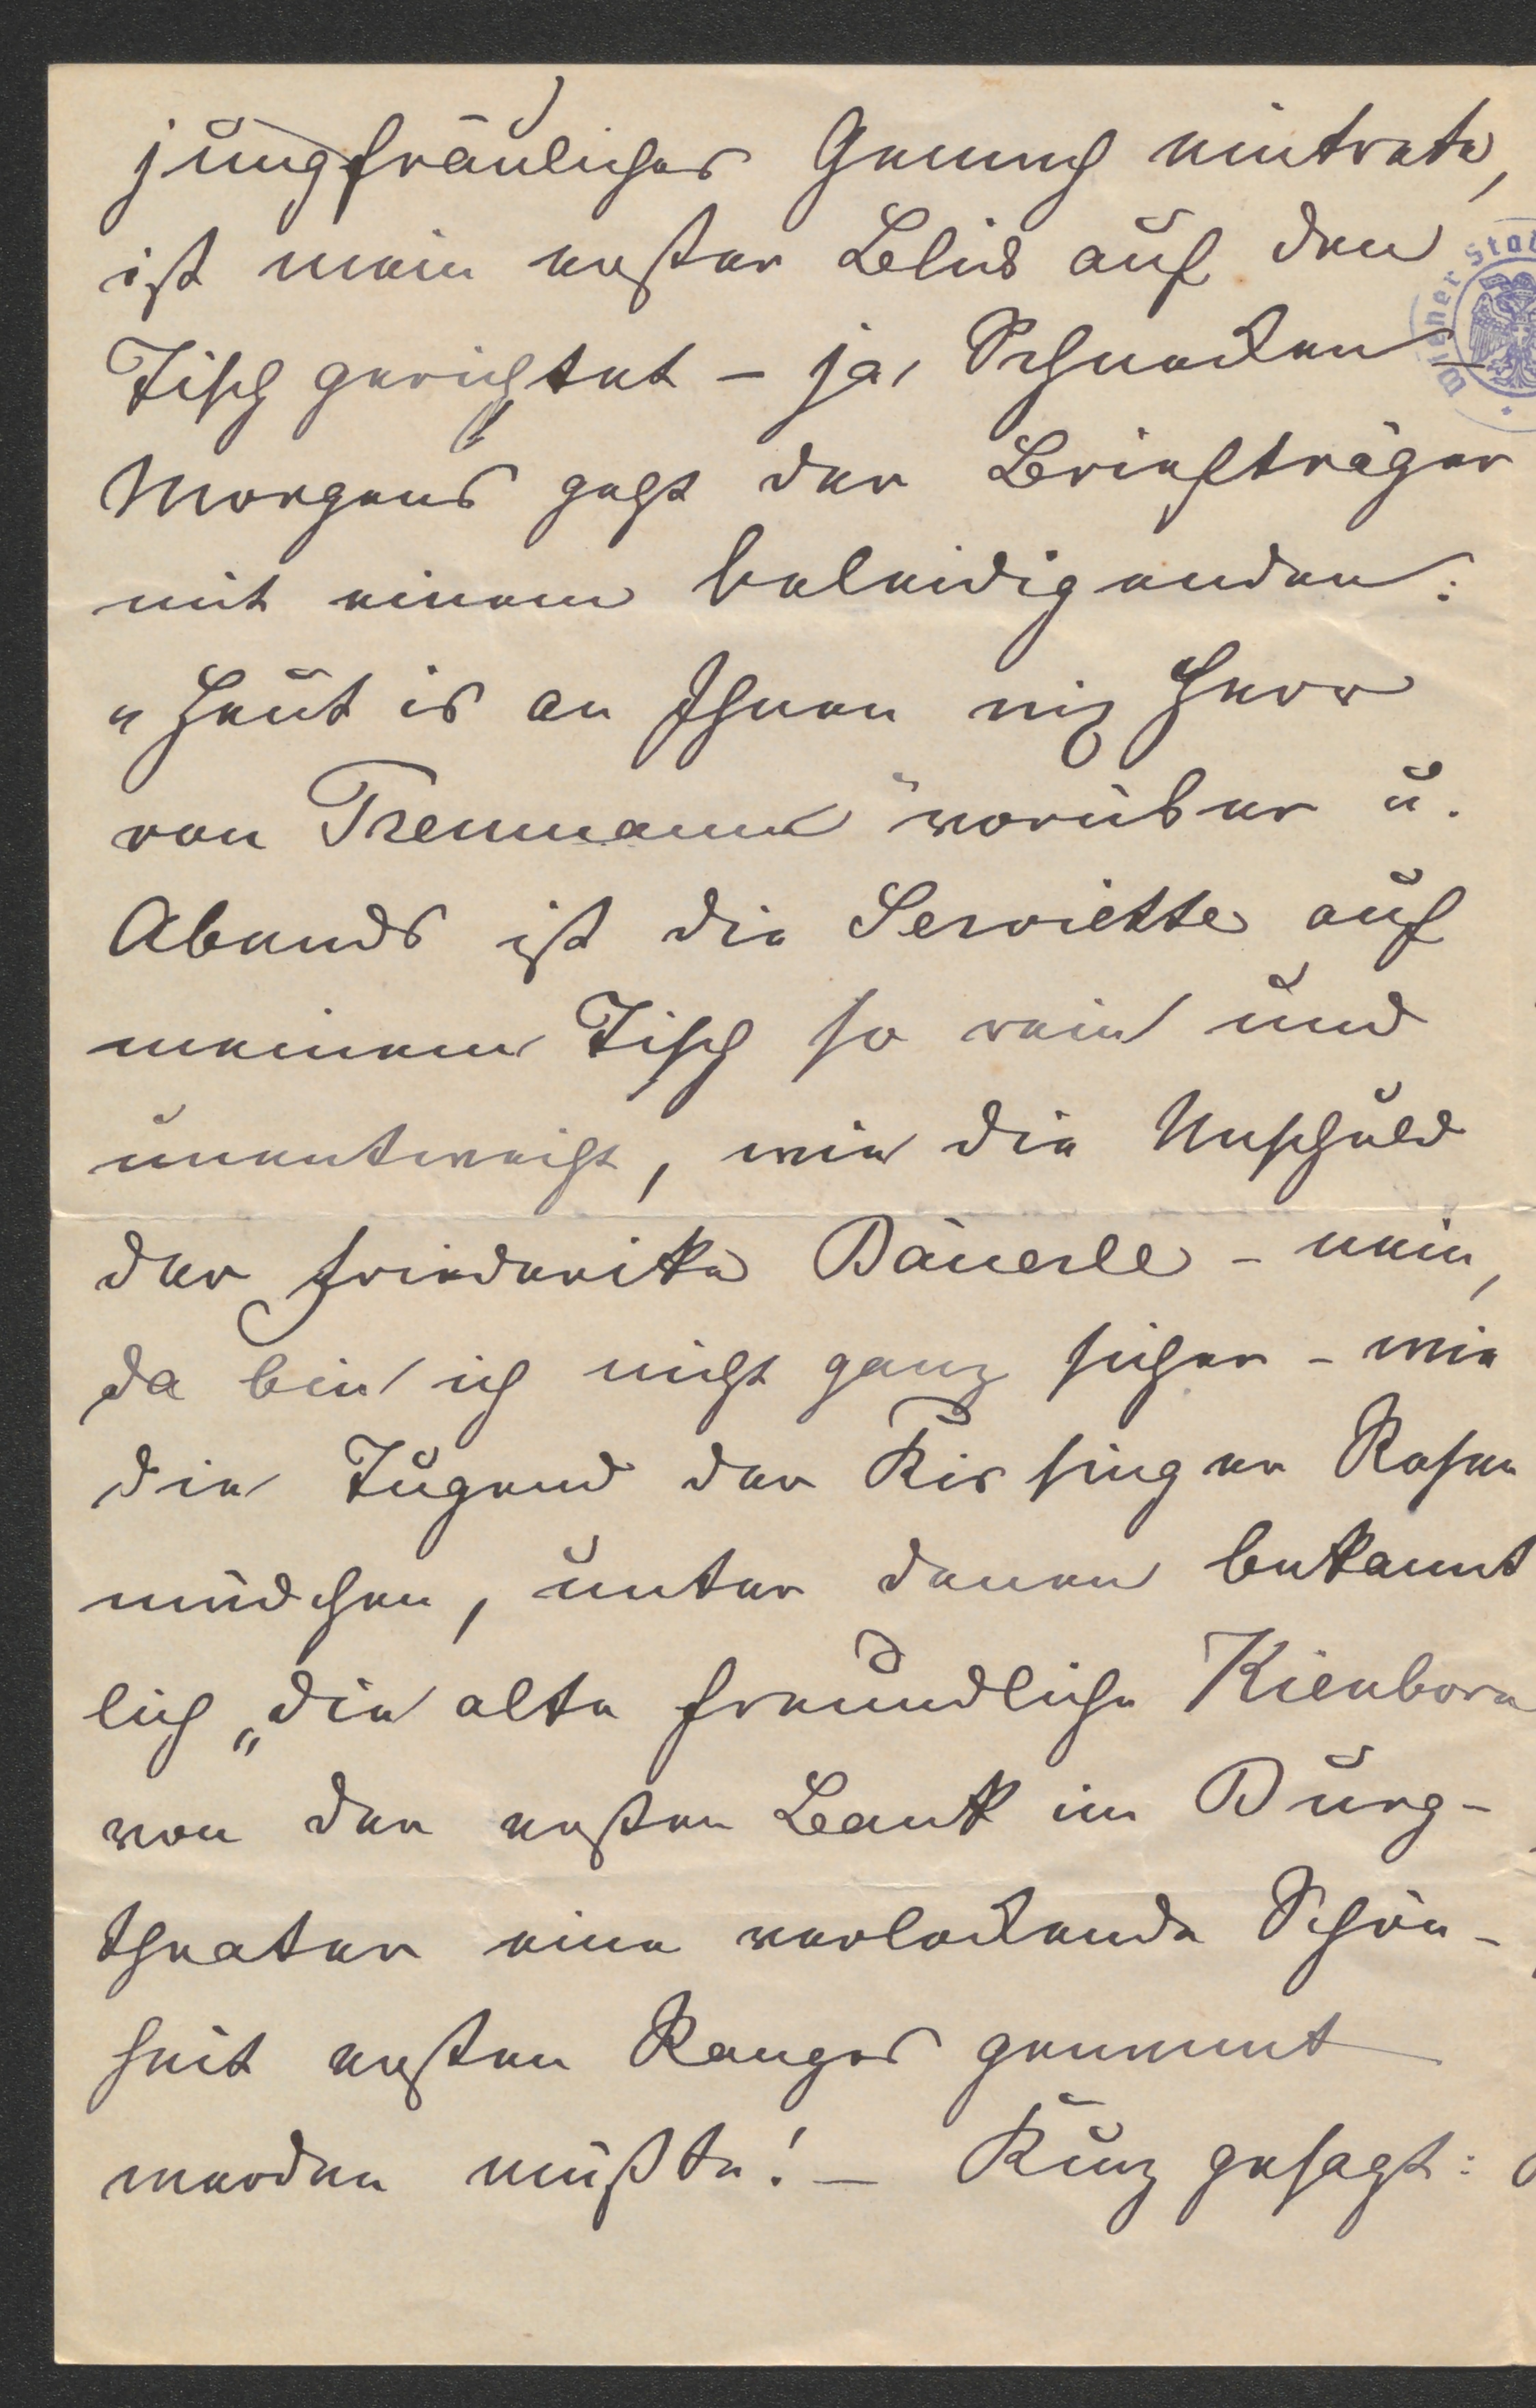 jungfräuliches Gemach eintrete,
ist mein erster Blick auf den
Tisch gerichtet – ja, Schnecken –
Morgens geht der Briefträger
mit einem beleidigenden:
„Heut is an Ihnen nix Herr
von Treumann“ vorüber u.
Abends ist die Serviette auf
meinem Tisch so rein und
unentweiht, wie die Unschuld
der Friederike Bäuerle – nein,
da bin ich nicht ganz sicher – wie
die Tugend der Kissinger Rosen
mädchen, unter denen bekannt
lich „die alte freundliche Kienborn
von der ersten Bank im Burg-
theater eine verlockende Schön-
heit ersten Ranges genannt
werden müßte! – Kurz gesagt:
Wiener Sta